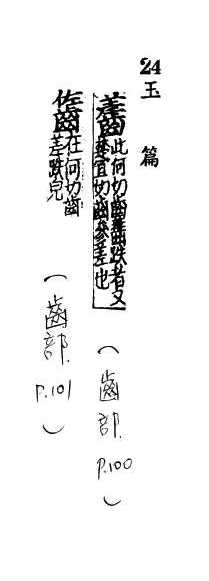 24 玉篇
齹此何切齒齹跌者又
楚宜切齒參差也
(齒部 P.100)
𪘓在何切齒
差跌皃
(齒部 P.101)